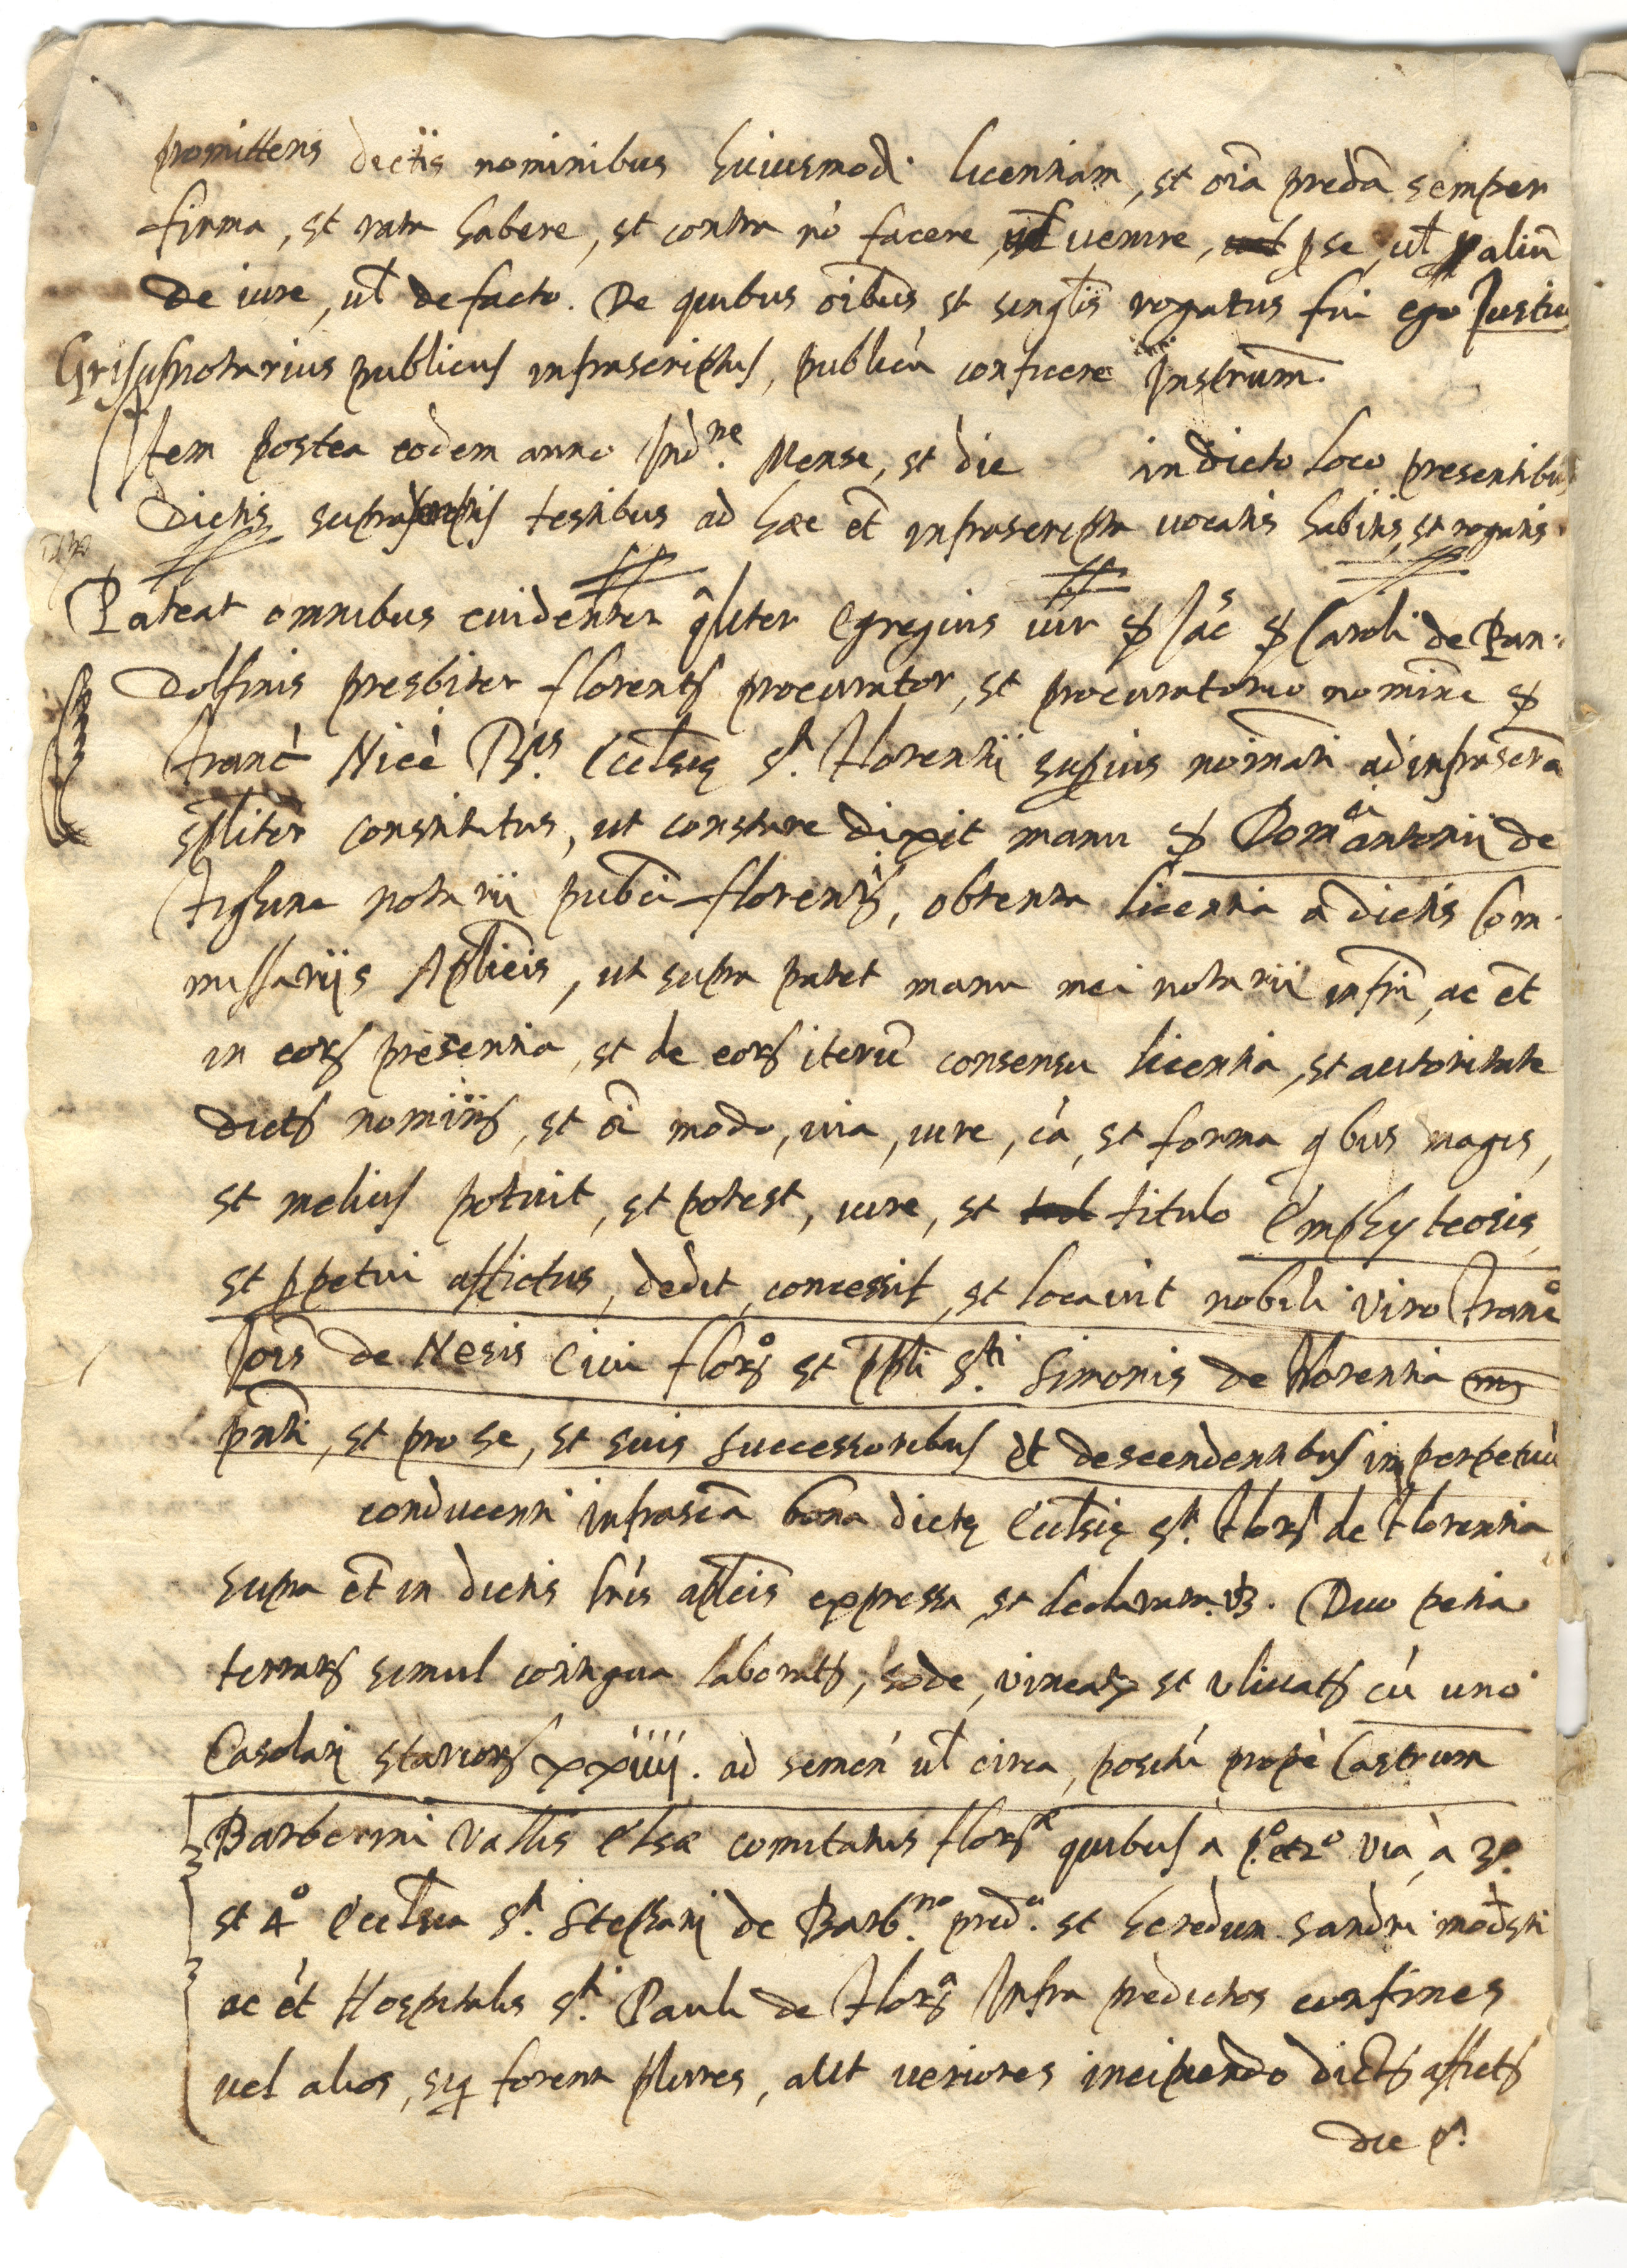 promittens dictis nominibus huiusmodi licentiam, et oīa predā semper
firma, et rata habere, et contra nō facere, ul̄ uenire, p se, ul̄ p aliū
de iure, ul̄ de facto. De quibus oībus et singlis rogatus fui ego Justiu
notarius publicus infrascriptus, publicū conficere Instrum̄.
Item postea eodem anno Ind.ne Mense, et die in dicto loco presentibus
dictis suprascriptis testibus ad hæc et̄ infrascripta uocatis habitis, et rogatis.
Pateat omnibus euidenter qliter Egregius uir S Jac.s S Caroli de Pan-
dolfinis presbiter florents procurator, et procuratorio nomine S
franc̄ Nicc̄ R.is Eccl̄się S.ti Florentii supius noīnati ad infrascrā
spl̄iter constitutus, ut constare dixit manu S Dom.ci antonii de
notarii pubci florents, obtenta licentia a dictis Com-
missariis Apl̄icis, ut supra patet manu mei notarii infri, ac et̄
in eor presentia, et de eor iterū consensu licentia, et autoritate
dicts nomiīs, et oī modo, uia, iure, cā, et forma qbus magis,
et melius potuit, et potest, iure, et titulo Emphyteosis,
et ppetui affictus, dedit, concessit, et locauit nobili viro franc.o
Jois de Nesis Ciui flor.o et ppli S.ti Simonis de Florentia
pnti, et pro se, et suis successoribus et descendentibus in perpetuū
conducenti infrascā bona dictę Eccl̄się S.ti Flor.i de Florentia
supra et̄ in dictis lris apl̄cis expressa et declarata. vz. Duo petia
terrar simul contigua laborats, sode, vineats et uliuats cū uno
Casolari starior xxiiij. ad semen ul̄ circa, posita propè Castrum
Barberini Vallis Elsæ comitatus flor.æ quibus à p.o et 2.o via, à 3.o
et 4.o Eccl̄sia S.ti Stephani de Barb.no pred.o et heredum Sandri
ac et̄ Hospitalis S.ti Pauli de Flor.a Infra predictos confines
uel alios, siq forent plures, aut ueriores incipiendo dicts afficts
die p.a